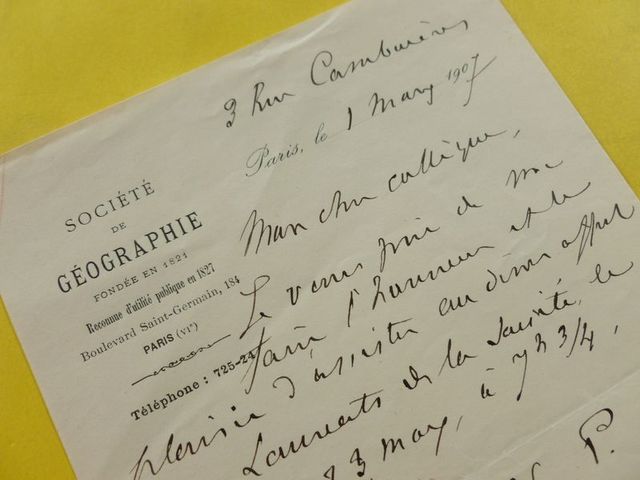 3 Rue Cambacérès
Paris, le 1 Mars 1907
SOCIÉTÉ
DE
GÉOGRAPHIE
FONDÉE EN 1821
Reconnue d'utilité publique en 1827
Boulevard Saint-Germain, 184
PARIS (VIe)
Téléphone : 725-24
Mon cher collègue,
Je vous prie de me
faire l'honneur et le
plaisir d'assister au diner offert
Laureats de la Société, le
23 mars, à 7h 3/4,
P.